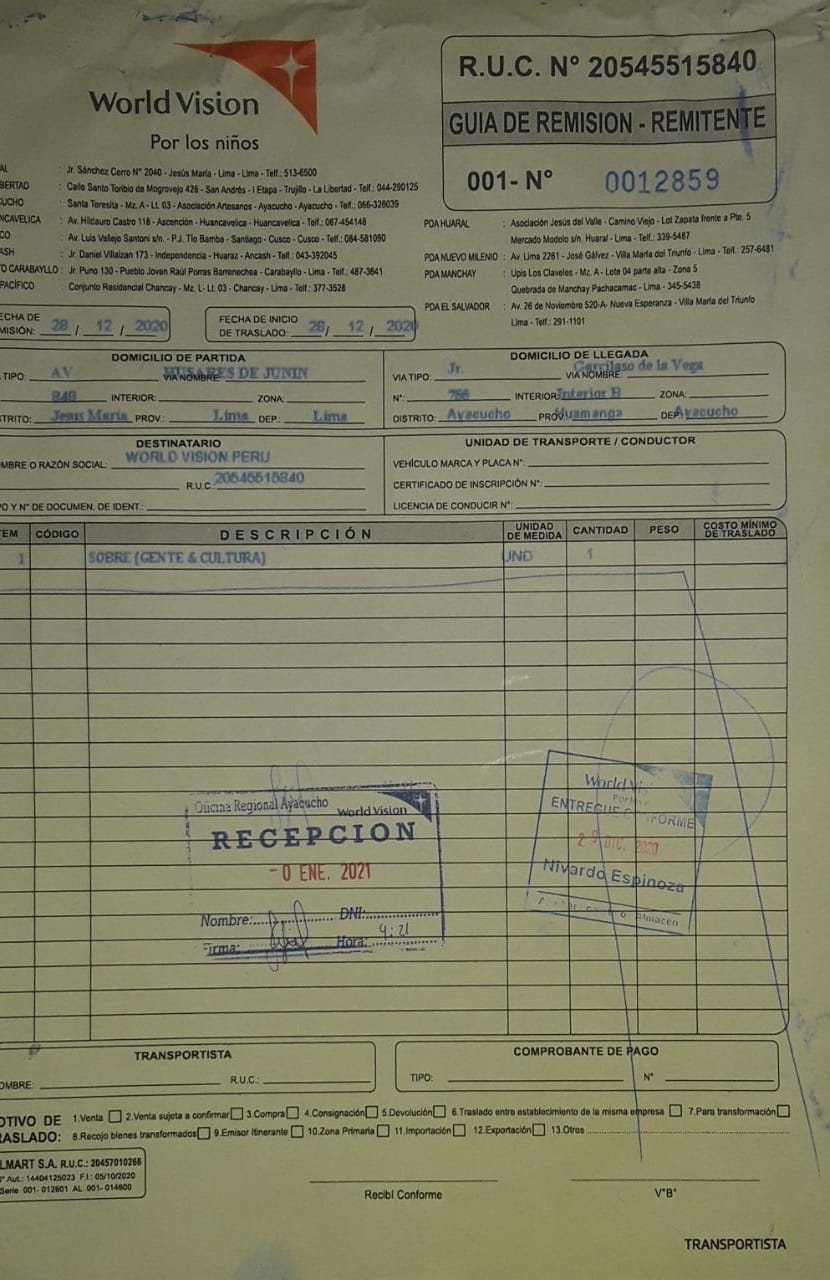 World Vision
Por los niños
R.U.C. N° 20545515840
GUIA DE REMISION - REMITENTE
001- N° 0012859
AL : Jr. Sánchez Cerro N° 2040 - Jesús María - Lima - Lima - Telf.: 513-6500
BERTAD : Calle Santo Toribio de Mogrovejo 426 - San Andrés - I Etapa - Trujillo - La Libertad - Telf.: 044-290125
UCHO : Santa Teresita - Mz. A - Lt. 03 - Asociación Artesanos - Ayacucho - Ayacucho - Telf.: 066-326039
NCAVELICA : Av. Hildauro Castro 118 - Ascención - Huancavelica - Huancavelica - Telf.: 067-454148
CO : Av. Luis Vallejo Santoni s/n. - P.J. Tío Bamba - Santiago - Cusco - Cusco - Telf.: 084-581090
ASH : Jr. Daniel Villaizan 173 - Independencia - Huaraz - Ancash - Telf.: 043-392045
O CARABAYLLO : Jr. Puno 130 - Pueblo Joven Raúl Porras Barrenechea - Carabayllo - Lima - Telf.: 487-3641
PACÍFICO : Conjunto Residencial Chancay - Mz. L - Lt. 03 - Chancay - Lima - Telf.: 377-3528
PDA HUARAL : Asociación Jesús del Valle - Camino Viejo - Lot Zapata frente a Pte. 5
Mercado Modelo s/n. Huaral - Lima - Telf.: 339-5487
PDA NUEVO MILENIO : Av. Lima 2261 - José Gálvez - Villa María del Triunfo - Lima - Telf.: 257-6481
PDA MANCHAY : Upis Los Claveles - Mz. A - Lote 04 parte alta - Zona 5
Quebrada de Manchay Pachacamac - Lima - 345-5438
PDA EL SALVADOR : Av. 26 de Noviembre 520-A- Nueva Esperanza - Villa María del Triunfo
Lima - Telf.: 291-1101
ECHA DE
MISIÓN: 28 / 12 / 2020
FECHA DE INICIO
DE TRASLADO: 28/ 12 / 2020
DOMICILIO DE PARTIDA
TIPO: AV VIA NOMBRE: HUSARES DE JUNIN
840 INTERIOR: ZONA:
TRITO: Jesus María PROV.: Lima DEP.: Lima
DOMICILIO DE LLEGADA
VIA TIPO: Jr. VIA NOMBRE: Garcilaso de la Vega
N°: 766 INTERIOR: Interior B ZONA:
DISTRITO: Ayacucho PROV Huamanga DEP: Ayacucho
DESTINATARIO
MBRE O RAZÓN SOCIAL: WORLD VISION PERU
R.U.C: 20545515840
O Y N° DE DOCUMEN. DE IDENT.:
UNIDAD DE TRANSPORTE / CONDUCTOR
VEHÍCULO MARCA Y PLACA N°:
CERTIFICADO DE INSCRIPCIÓN N°:
LICENCIA DE CONDUCIR N°:
TEM CÓDIGO DESCRIPCIÓN UNIDAD DE MEDIDA CANTIDAD PESO COSTO MÍNIMO DE TRASLADO
1 SOBRE (GENTE & CULTURA) UND 1
Oficina Regional Ayacucho World Vision
RECEPCION
0 ENE. 2021
Nombre: DNI:
Firma: Hora: 4:21
World
ENTREGUE
29 DIC. 2020
Nivardo Espinoza
Almacén
TRANSPORTISTA
OMBRE: R.U.C.:
COMPROBANTE DE PAGO
TIPO: N°
OTIVO DE 1.Venta 2.Venta sujeta a confirmar 3.Compra 4.Consignación 5.Devolución 6.Traslado entre establecimiento de la misma empresa 7.Para transformación
RASLADO: 8.Recojo bienes transformados 9.Emisor Itinerante 10.Zona Primaria 11.Importación 12.Exportación 13.Otros
LMART S.A. R.U.C.: 20457010266
° Aut.: 14404125023 F.I.: 05/10/2020
Serie 001- 012601 AL 001-014600
Recibí Conforme
V°B°
TRANSPORTISTA